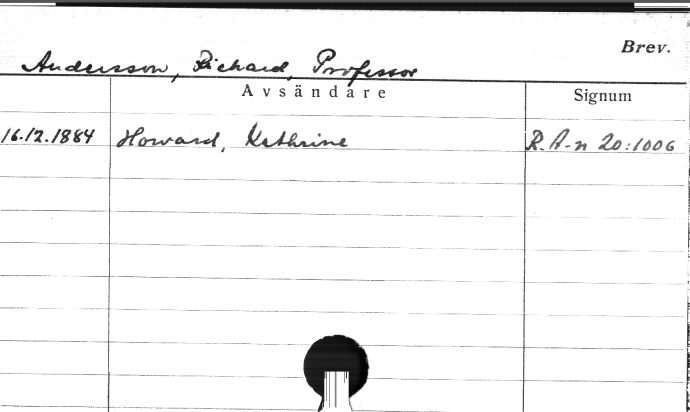 Brev.
Andersson, Richard, Professor
Avsändare Signum
16.12.1884 Howard, Kathrine R. A-n 20:1006